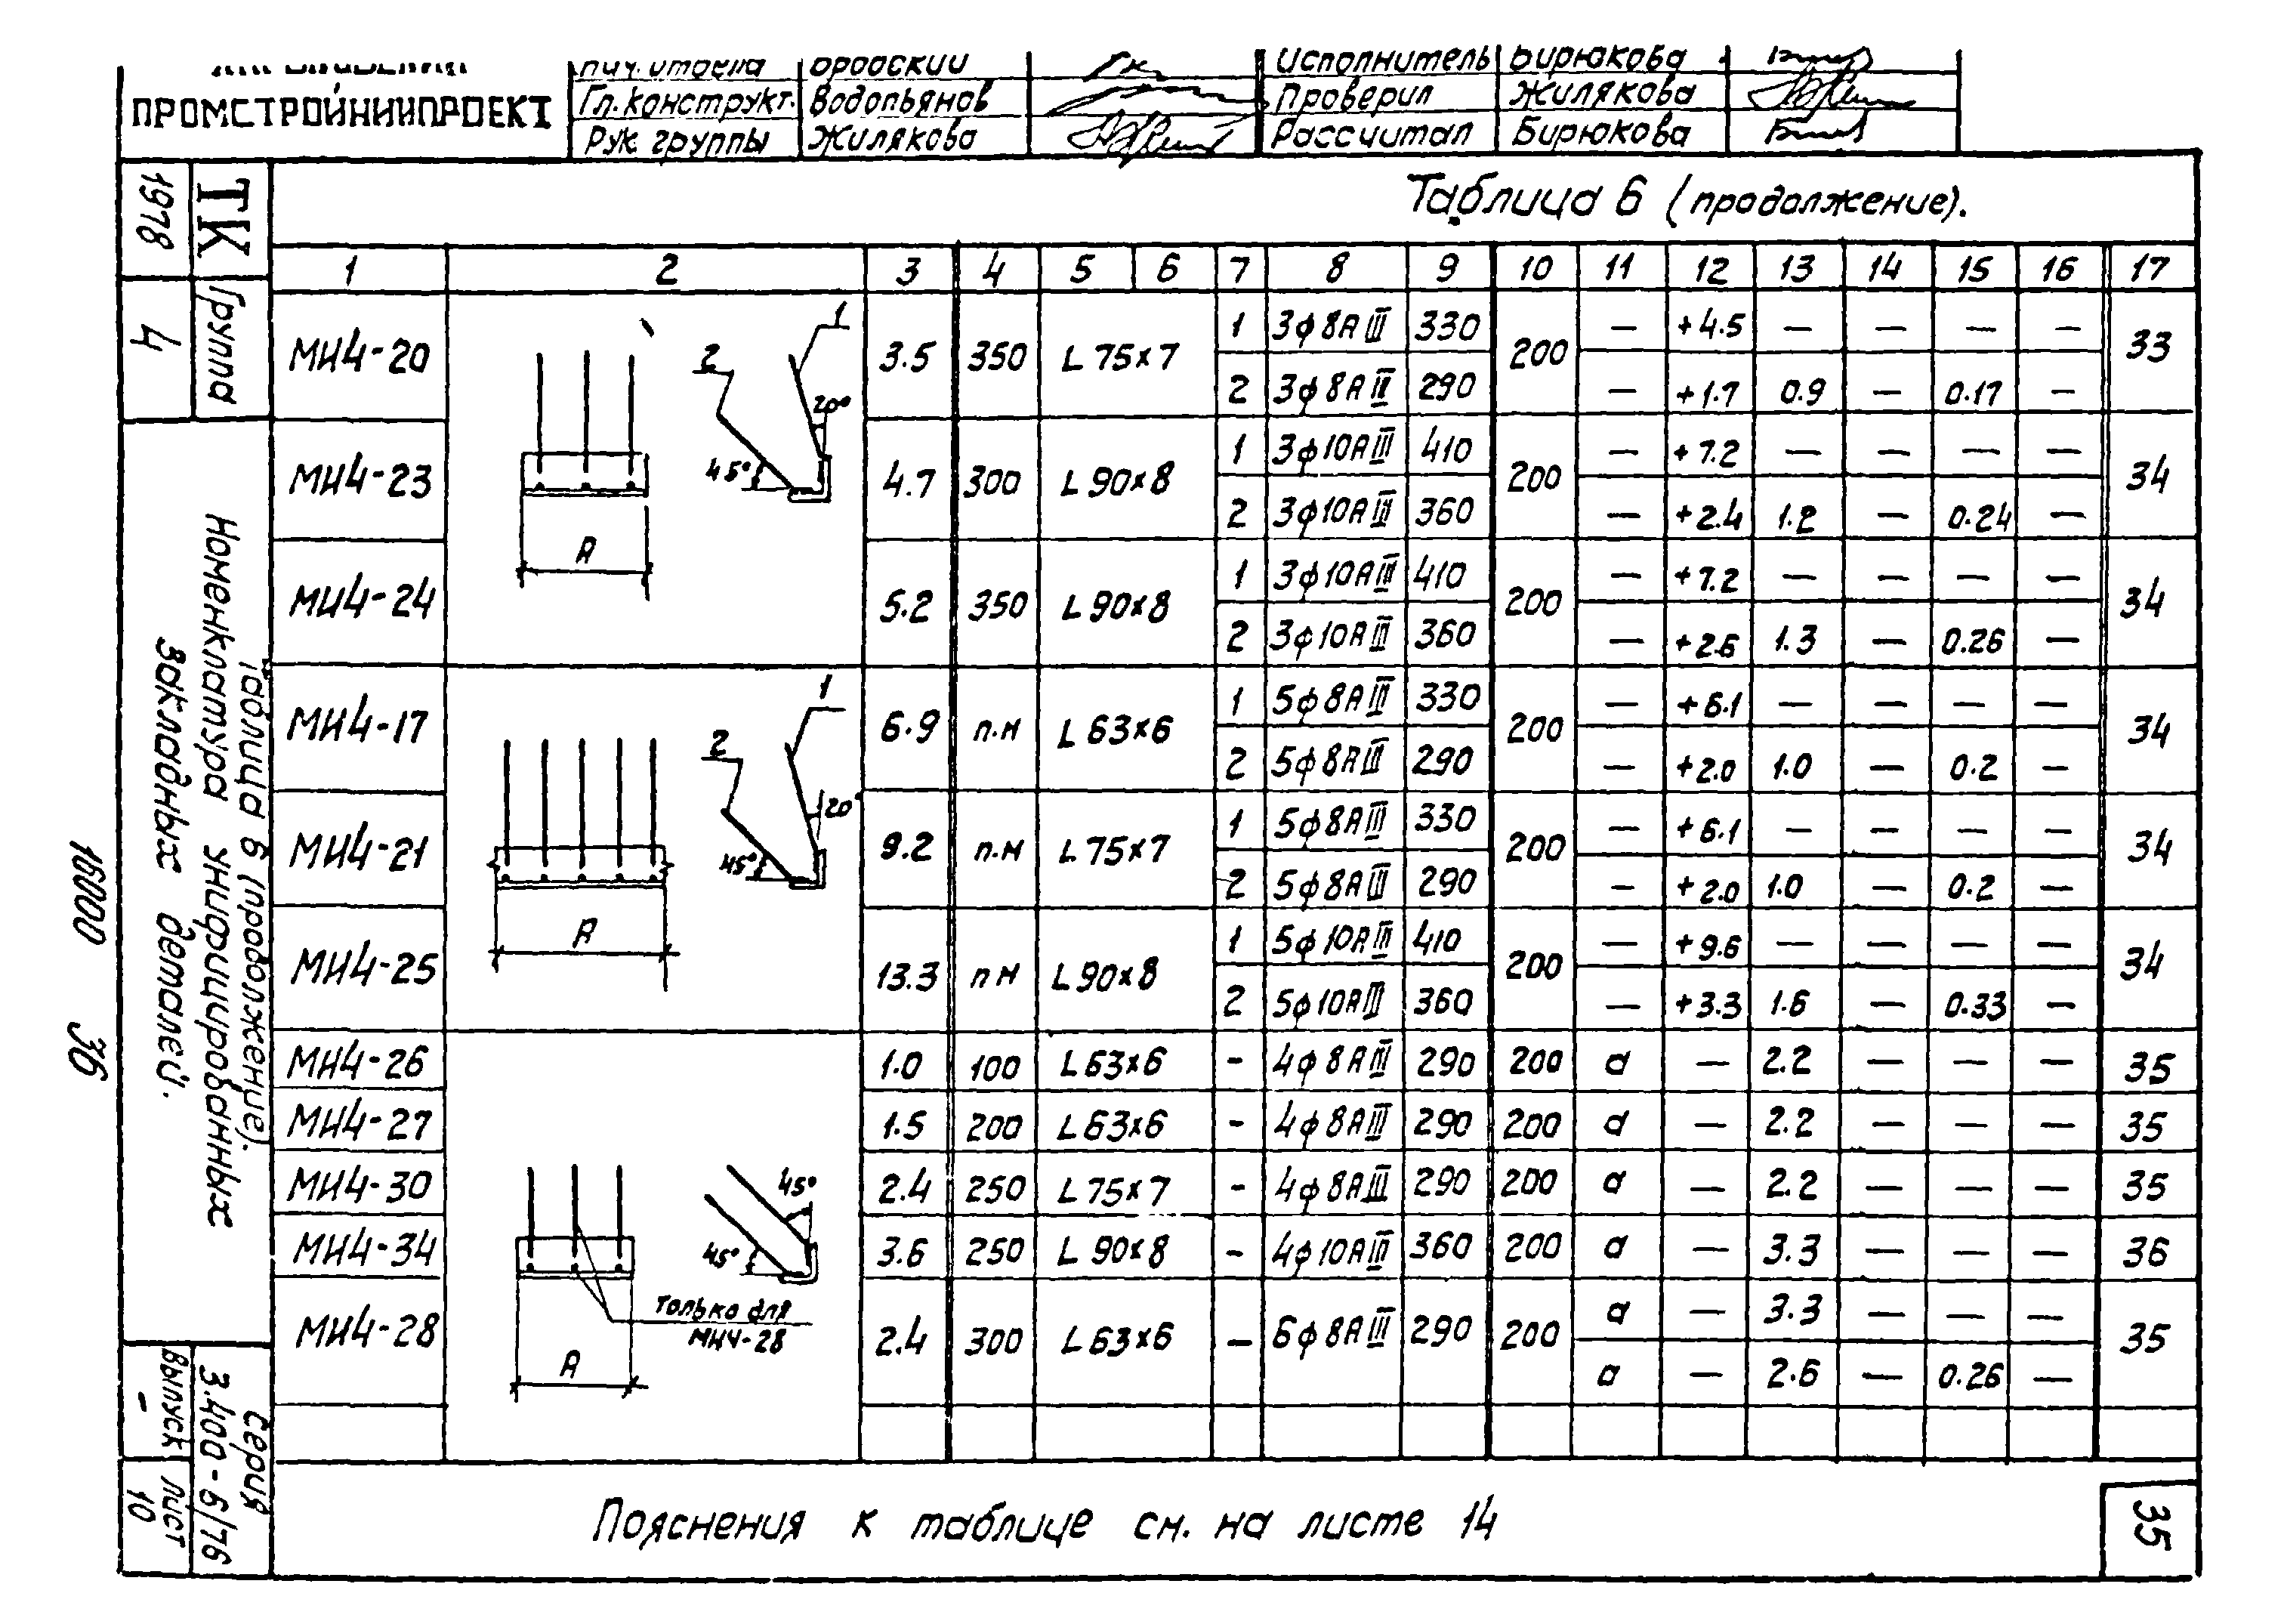 ПРОМСТРОЙНИИПРОЕКТ
Гл. конструкт. Водопьянов
Рук. группы Жилякова
Исполнитель Бирюкова
Проверил Жилякова
Рассчитал Бирюкова
ТК
1978
Группа
4
Таблица 6 (продолжение).
Номенклатура унифицированных
закладных деталей.
Серия
3.400-6/76
Выпуск Лист
- 10
16000 36
Таблица 6 (продолжение).
1 2 3 4 5 6 7 8 9 10 11 12 13 14 15 16 17
МН4-20 3.5 350 L 75×7 1 3ф8АIII 330 200 — +4.5 — — — — 33
2 3ф8АIII 290 — +1.7 0.9 — 0.17 —
МН4-23 4.7 300 L 90×8 1 3ф10АIII 410 200 — +7.2 — — — — 34
2 3ф10АIII 360 — +2.4 1.2 — 0.24 —
МН4-24 5.2 350 L 90×8 1 3ф10АIII 410 200 — +7.2 — — — — 34
2 3ф10АIII 360 — +2.6 1.3 — 0.26 —
1
2
20°
45°
А
МН4-17 6.9 п.м L 63×6 1 5ф8АIII 330 200 — +6.1 — — — — 34
2 5ф8АIII 290 — +2.0 1.0 — 0.2 —
МН4-21 9.2 п.м L 75×7 1 5ф8АIII 330 200 — +6.1 — — — — 34
2 5ф8АIII 290 — +2.0 1.0 — 0.2 —
МН4-25 13.3 п м L 90×8 1 5ф10АIII 410 200 — +9.6 — — — — 34
2 5ф10АIII 360 — +3.3 1.6 — 0.33 —
1
2
20°
45°
А
МН4-26 1.0 100 L 63×6 - 4ф8АIII 290 200 а — 2.2 — — — 35
МН4-27 1.5 200 L 63×6 - 4ф8АIII 290 200 а — 2.2 — — — 35
МН4-30 2.4 250 L 75×7 - 4ф8АIII 290 200 а — 2.2 — — — 35
МН4-34 3.6 250 L 90×8 - 4ф10АIII 360 200 а — 3.3 — — — 36
МН4-28 2.4 300 L 63×6 — 6ф8АIII 290 200 а — 3.3 — — — 35
а — 2.6 — 0.26 —
45°
45°
только для
МН4-28
А
Пояснения к таблице см. на листе 14
35